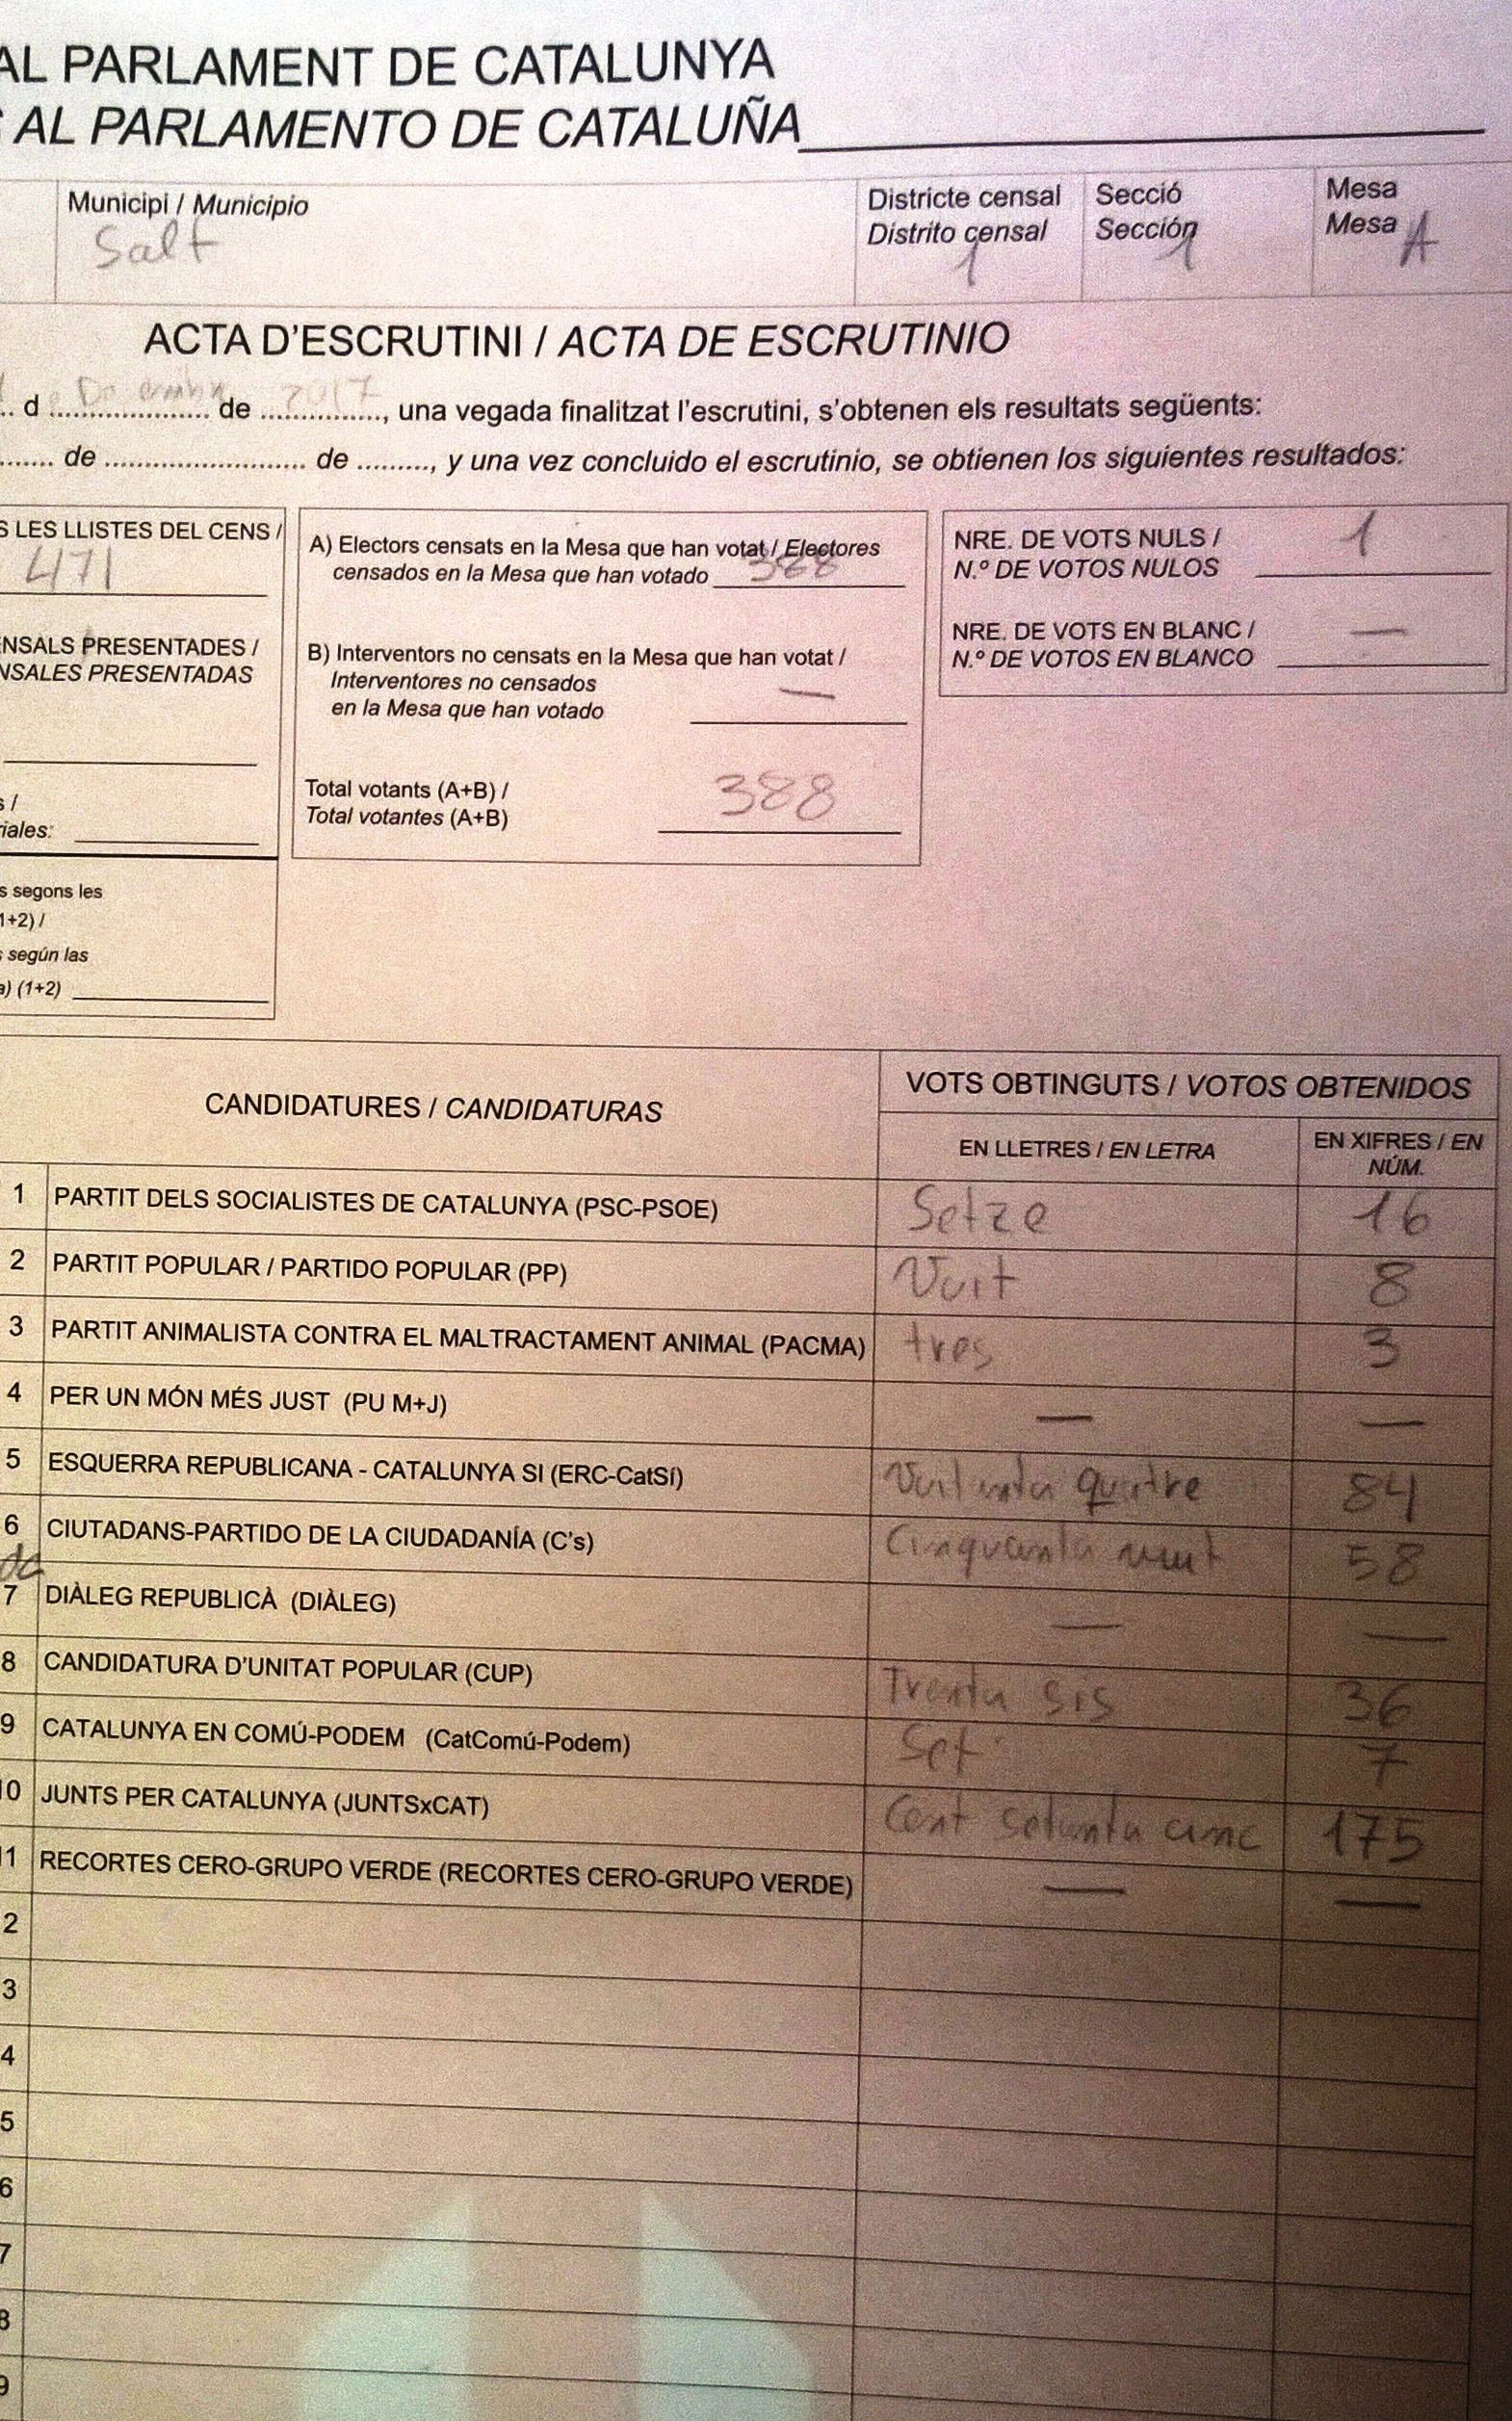 AL PARLAMENT DE CATALUNYA
AL PARLAMENTO DE CATALUÑA
Municipi / Municipio
Salt
Districte censal
Distrito censal
1
Secció
Sección
1
Mesa
Mesa A
ACTA D'ESCRUTINI / ACTA DE ESCRUTINIO
d ........ de 2017, una vegada finalitzat l'escrutini, s'obtenen els resultats següents:
de ........ de ........, y una vez concluido el escrutinio, se obtienen los siguientes resultados:
LES LLISTES DEL CENS /
471
ENSALS PRESENTADES /
NSALES PRESENTADAS
s /
riales:
s segons les
1+2) /
s según las
a) (1+2)
A) Electors censats en la Mesa que han votat / Electores
censados en la Mesa que han votado 388
B) Interventors no censats en la Mesa que han votat /
Interventores no censados
en la Mesa que han votado —
Total votants (A+B) /
Total votantes (A+B) 388
NRE. DE VOTS NULS /
N.º DE VOTOS NULOS 1
NRE. DE VOTS EN BLANC /
N.º DE VOTOS EN BLANCO —
CANDIDATURES / CANDIDATURAS
VOTS OBTINGUTS / VOTOS OBTENIDOS
EN LLETRES / EN LETRA
EN XIFRES / EN
NÚM.
1 PARTIT DELS SOCIALISTES DE CATALUNYA (PSC-PSOE) Setze 16
2 PARTIT POPULAR / PARTIDO POPULAR (PP) Vuit 8
3 PARTIT ANIMALISTA CONTRA EL MALTRACTAMENT ANIMAL (PACMA) tres 3
4 PER UN MÓN MÉS JUST (PU M+J) — —
5 ESQUERRA REPUBLICANA - CATALUNYA SI (ERC-CatSí) Vuitanta quatre 84
6 CIUTADANS-PARTIDO DE LA CIUDADANÍA (C's) Cinquanta vuit 58
7 DIÀLEG REPUBLICÀ (DIÀLEG) — —
8 CANDIDATURA D'UNITAT POPULAR (CUP) Trenta sis 36
9 CATALUNYA EN COMÚ-PODEM (CatComú-Podem) Set 7
10 JUNTS PER CATALUNYA (JUNTSxCAT) Cent setanta cinc 175
11 RECORTES CERO-GRUPO VERDE (RECORTES CERO-GRUPO VERDE) — —
2
3
4
5
6
7
8
9